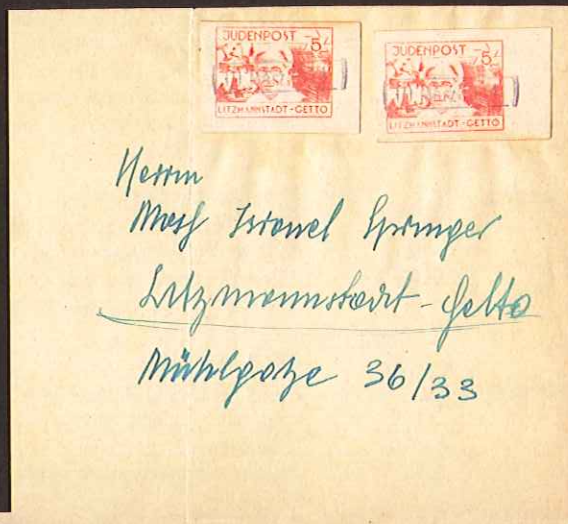 JUDENPOST 5
LITZMANNSTADT-GETTO
JUDENPOST 5
LITZMANNSTADT-GETTO
Herrn
Mosch Israel Springer
Litzmannstadt-Getto
Mühlgasse 36/33